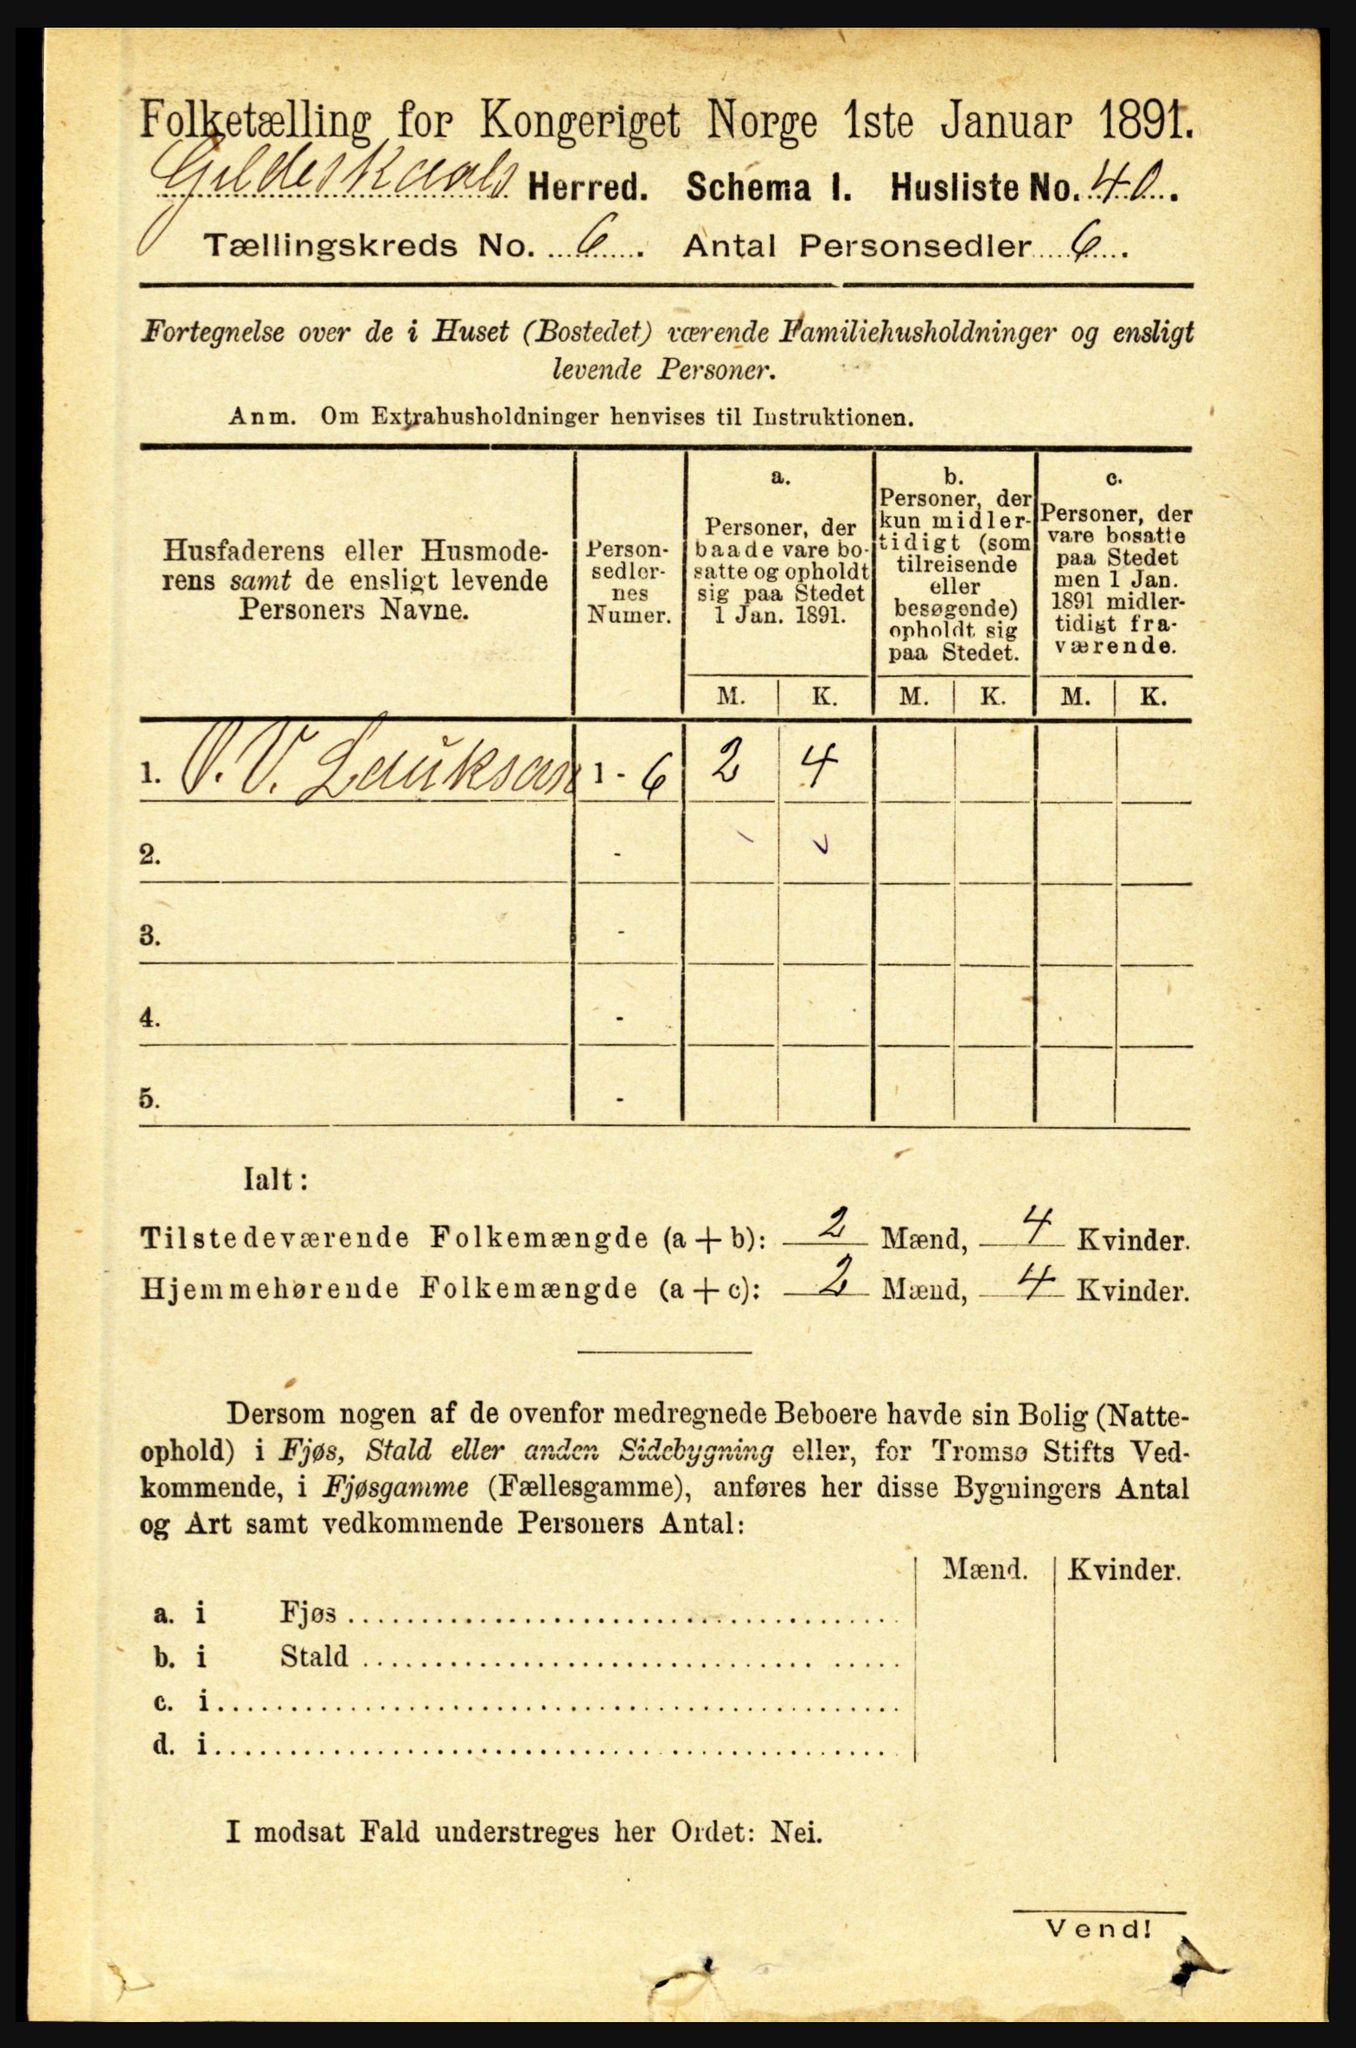 Folketælling for Kongeriget Norge 1ste Januar 1891.
Gildeskaals Herred. Schema I. Husliste No. 40.
Tællingskreds No. 6. Antal Personsedler 6.
Fortegnelse over de i Huset (Bostedet) værende Familiehusholdninger og ensligt
levende Personer.
Anm. Om Extrahusholdninger henvises til Instruktionen.
Husfaderens eller Husmode-
rens samt de ensligt levende
Personers Navne.
Person-
sedler-
nes
Numer.
a.
Personer, der
baade vare bo-
satte og opholdt
sig paa Stedet
1 Jan. 1891.
b.
Personer, der
kun midler-
tidigt (som
tilreisende
eller
besøgende)
opholdt sig
paa Stedet.
c.
Personer, der
vare bosatte
paa Stedet
men 1 Jan.
1891 midler-
tidigt fra-
værende.
M. K. M. K. M. K.
1. 1 - 6 2 4
2. -
3. -
4. -
5. -
Ialt:
Tilstedeværende Folkemængde (a + b): 2 Mænd, 4 Kvinder.
Hjemmehørende Folkemængde (a + c): 2 Mænd, 4 Kvinder.
Dersom nogen af de ovenfor medregnede Beboere havde sin Bolig (Natte-
ophold) i Fjøs, Stald eller anden Sidebygning eller, for Tromsø Stifts Ved-
kommende, i Fjøsgamme (Fællesgamme), anføres her disse Bygningers Antal
og Art samt vedkommende Personers Antal:
Mænd. Kvinder.
a. i Fjøs
b. i Stald
c. i
d. i
I modsat Fald understreges her Ordet: Nei.
Vend!